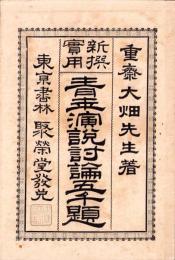 重齋大畑先生著
新撰
實用
青年演説討論五千題
東京書林 聚榮堂發兌